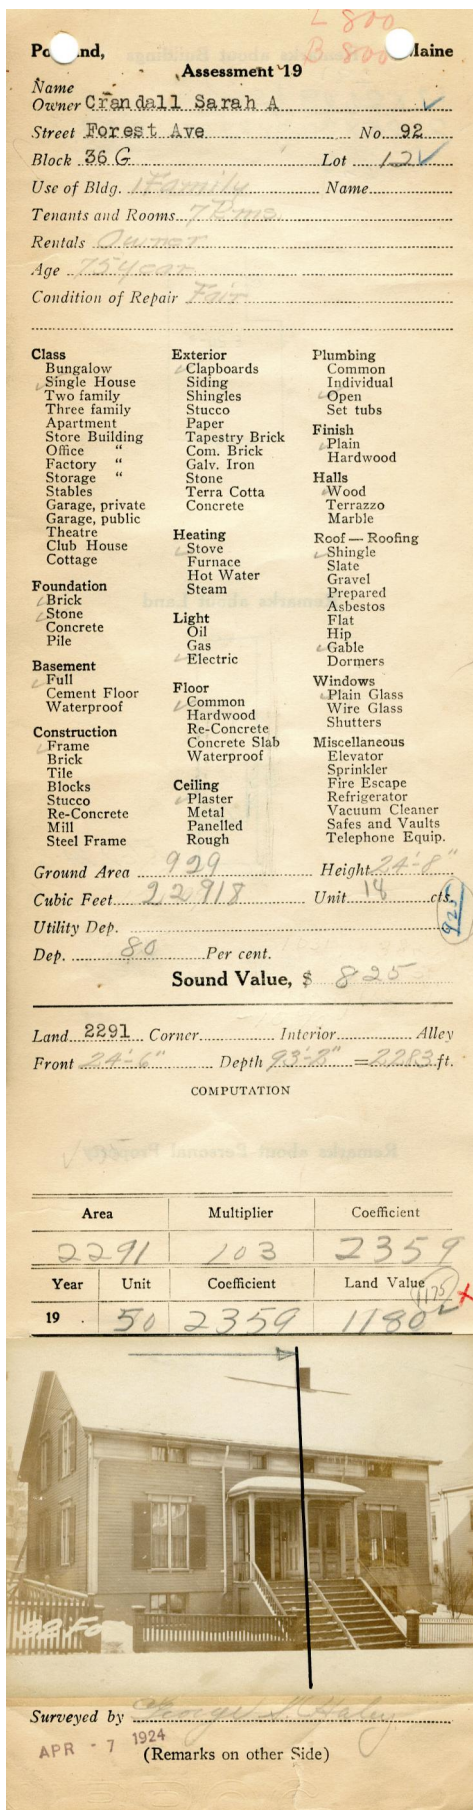 L 800
B 800
Portland, Maine
Assessment 19
Name
Owner Crandall Sarah A
Street Forest Ave No. 92
Block 36 G Lot 12
Use of Bldg. 1 Family Name
Tenants and Rooms 7 Rms
Rentals Owner
Age 75 year
Condition of Repair Fair
Class
Bungalow
Single House
Two family
Three family
Apartment
Store Building
Office "
Factory "
Storage "
Stables
Garage, private
Garage, public
Theatre
Club House
Cottage
Foundation
Brick
Stone
Concrete
Pile
Basement
Full
Cement Floor
Waterproof
Construction
Frame
Brick
Tile
Blocks
Stucco
Re-Concrete
Mill
Steel Frame
Exterior
Clapboards
Siding
Shingles
Stucco
Paper
Tapestry Brick
Com. Brick
Galv. Iron
Stone
Terra Cotta
Concrete
Heating
Stove
Furnace
Hot Water
Steam
Light
Oil
Gas
Electric
Floor
Common
Hardwood
Re-Concrete
Concrete Slab
Waterproof
Ceiling
Plaster
Metal
Panelled
Rough
Plumbing
Common
Individual
Open
Set tubs
Finish
Plain
Hardwood
Halls
Wood
Terrazzo
Marble
Roof — Roofing
Shingle
Slate
Gravel
Prepared
Asbestos
Flat
Hip
Gable
Dormers
Windows
Plain Glass
Wire Glass
Shutters
Miscellaneous
Elevator
Sprinkler
Fire Escape
Refrigerator
Vacuum Cleaner
Safes and Vaults
Telephone Equip.
Ground Area 929 Height 24'-8"
Cubic Feet 22918 Unit 18 cts.
925
Utility Dep.
Dep. 80 Per cent.
Sound Value, $ 825
Land 2291 Corner Interior Alley
Front 24'-6" Depth 93'-2" = 2283 ft.
COMPUTATION
Area Multiplier Coefficient
2291 103 2359
Year Unit Coefficient Land Value
1175
19 50 2359 1180
Surveyed by George S. Haley
APR - 7 1924
(Remarks on other Side)